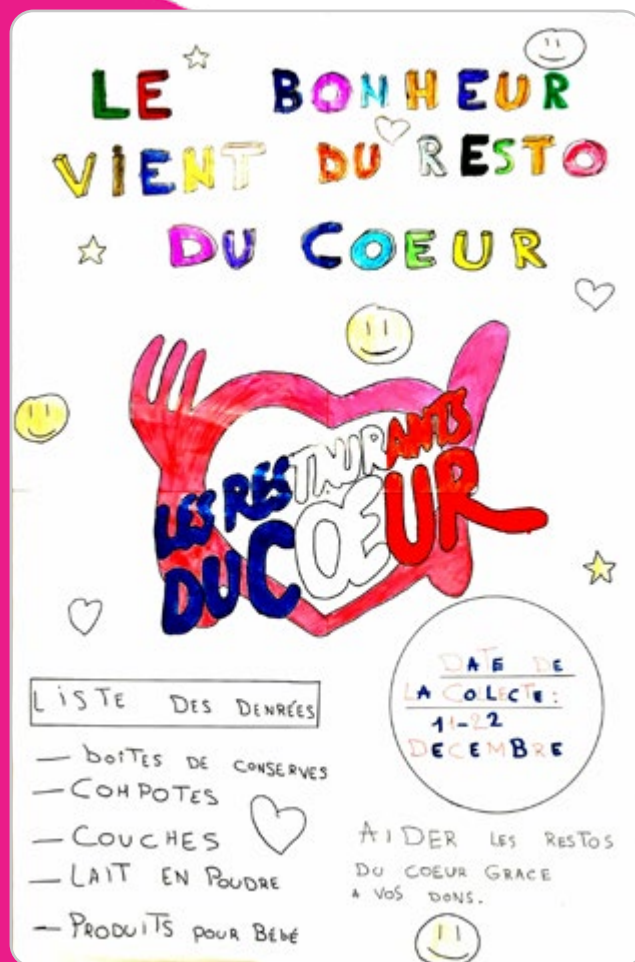 LE BONHEUR
VIENT DU RESTO
DU COEUR
LES RESTAURANTS
DU CŒUR
LISTE DES DENRÉES
— BOITES DE CONSERVES
— COMPOTES
— COUCHES
— LAIT EN POUDRE
— PRODUITS POUR BÉBÉ
DATE DE
LA COLECTE:
11-22
DECEMBRE
AIDER LES RESTOS
DU COEUR GRACE
A VOS DONS.